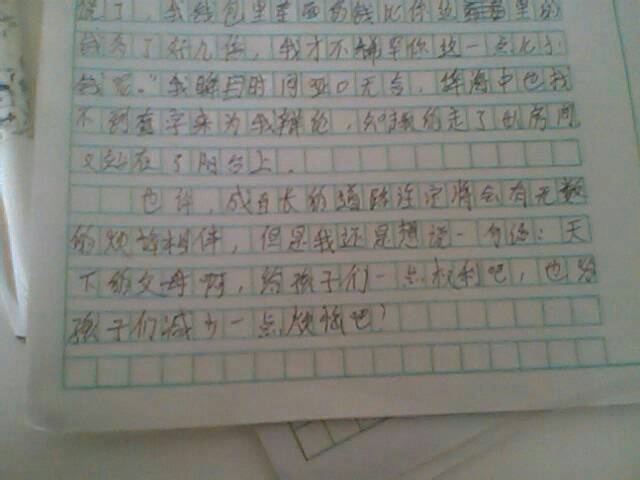 了，我钱包里里面的钱比你这里的
钱多了好几倍，我才不稀罕你这一点比小
钱呢。"我瞬时间哑口无言，辞海中也找
不到字来为我辩论，只得走了出房间
又站在了阳台上。
也许，成长的道路注定将会有无数
的烦恼相伴，但是我还是想说一句话：天
下的父母啊，给孩子们一点权利吧，也给
孩子们减少一点烦恼吧！